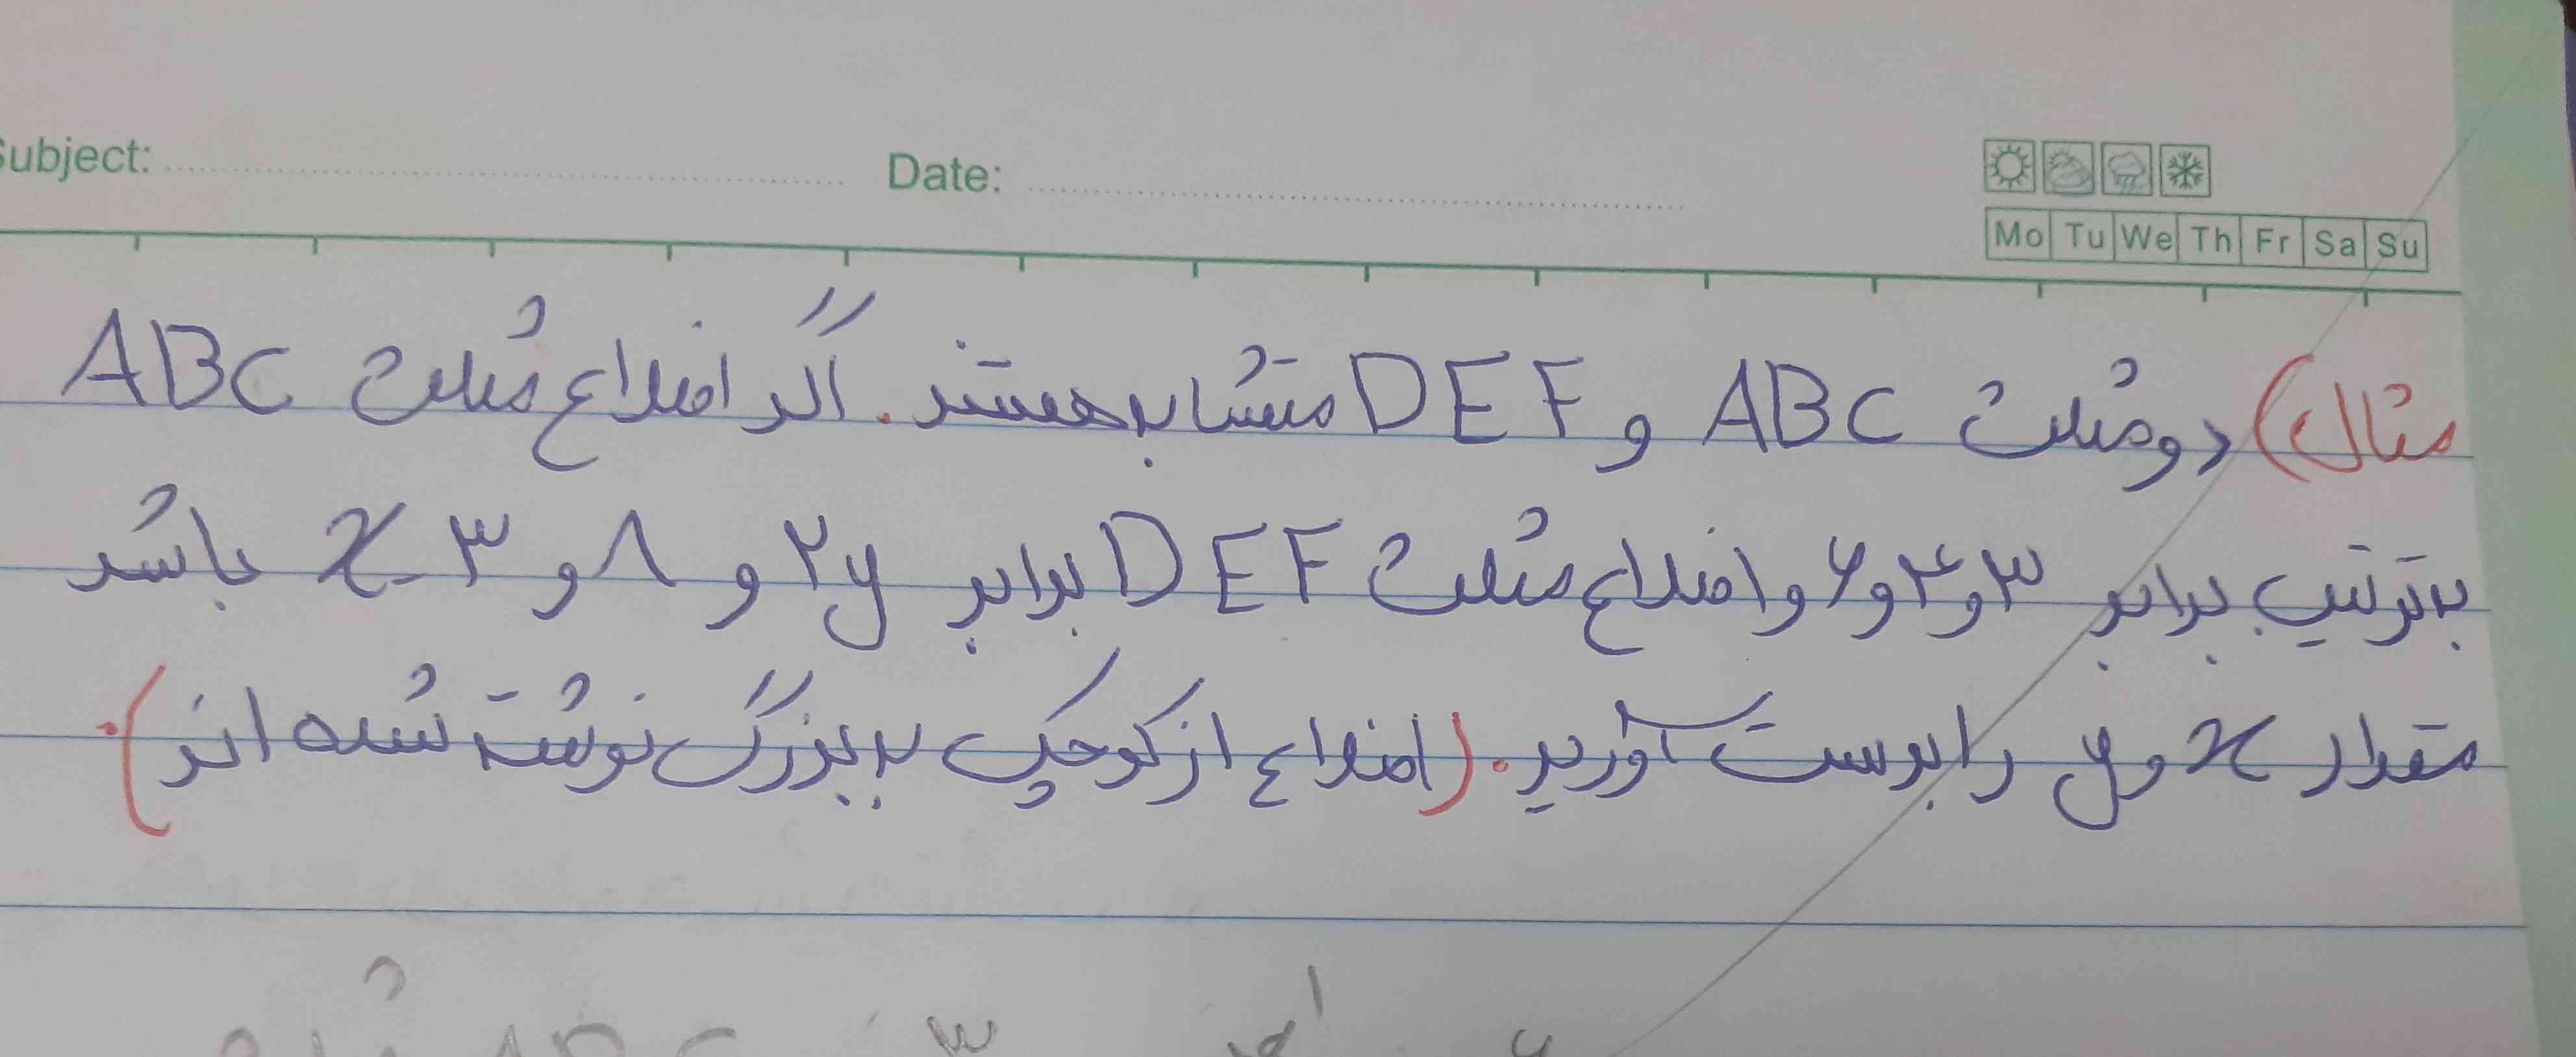 Subject: Date:
Mo Tu We Th Fr Sa Su
مثال) دو مثلث ABC و DEF متشابه هستند. اگر اضلاع مثلث ABC
به ترتیب برابر ۳ و ۴ و ۶ و اضلاع مثلث DEF برابر ۲y و ۸ و x-۳ باشد
مقدار x و y را بدست آورید. (اضلاع از کوچک به بزرگ نوشته شده اند).